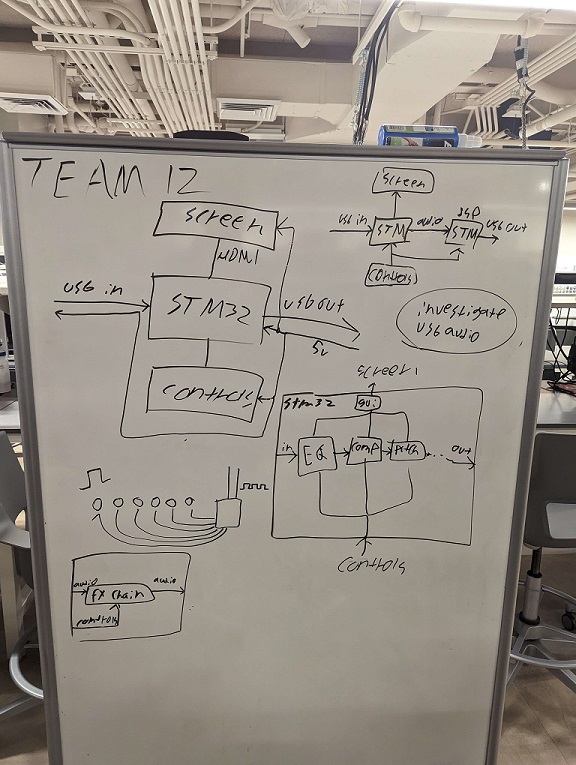 TEAM 12
screen
HDMI
usb in
STM32
usb out
5v
controls
screen
usb in
STM
audio
DSP
STM
usb out
controls
investigate
usb audio
screen
stm32
gui
in
EQ
comp
pitch
... out
controls
audio
fx chain
audio
controls